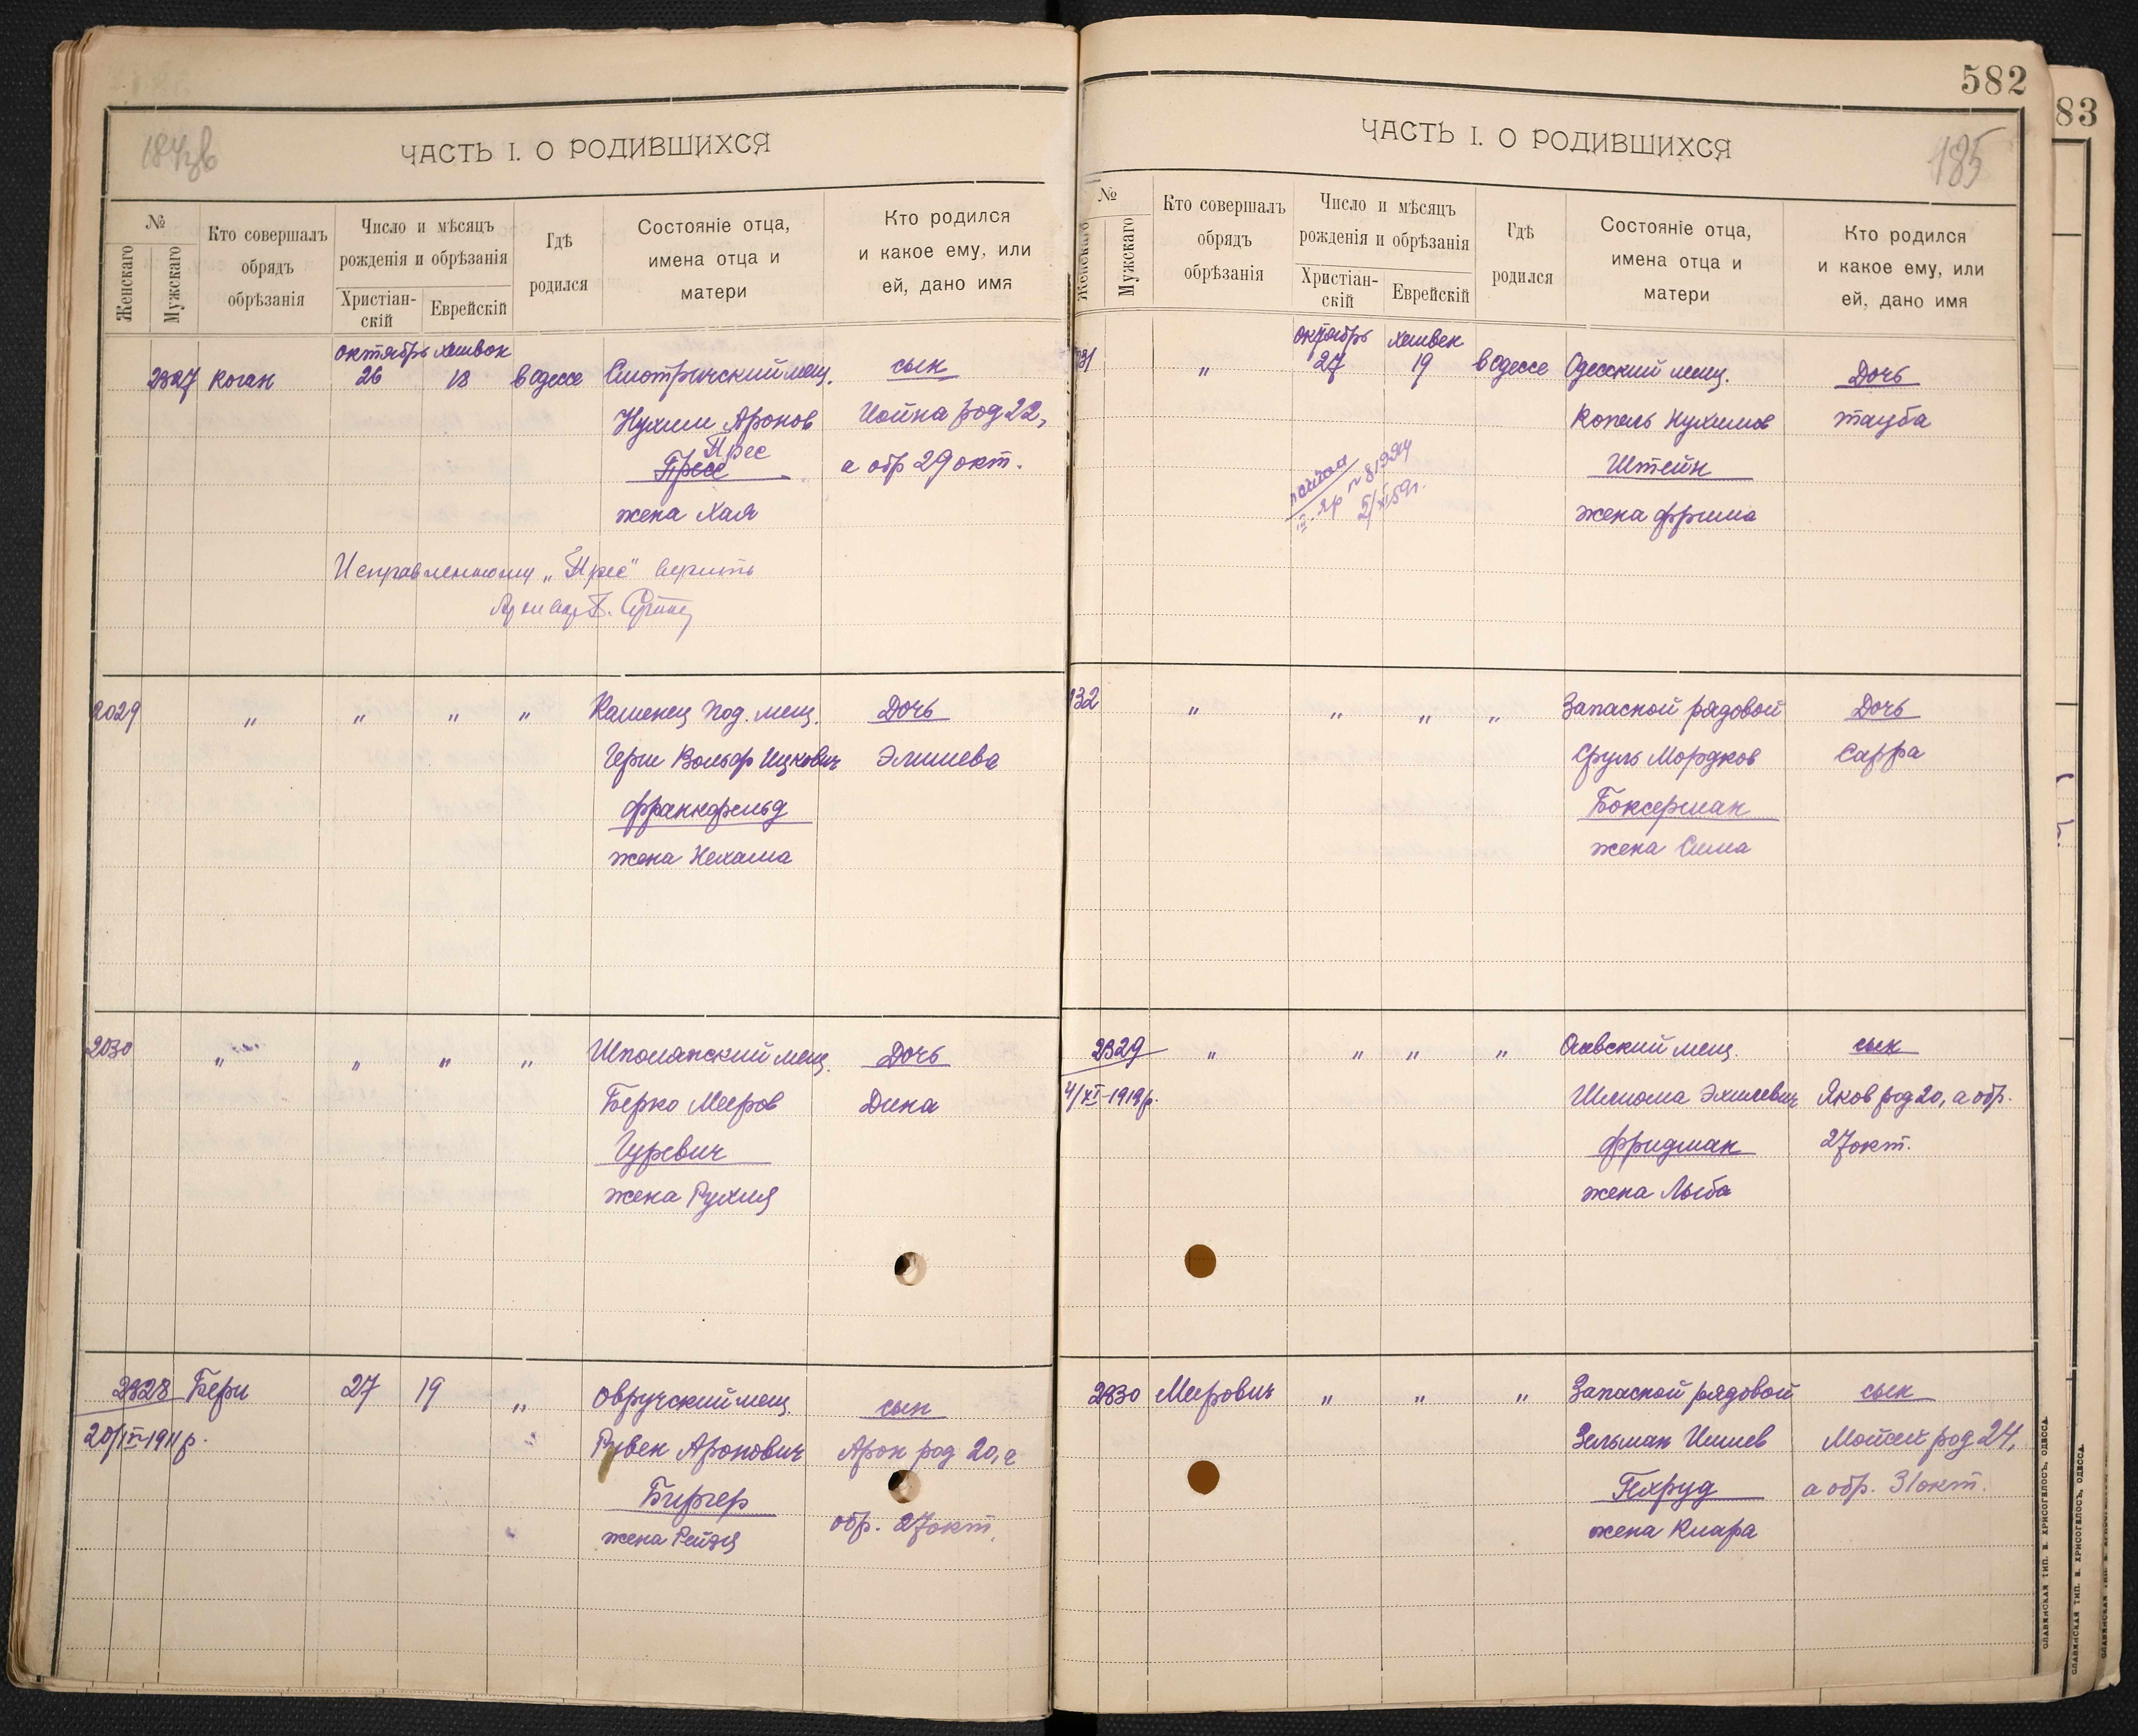 184 зв
ЧАСТЬ I. О РОДИВШИХСЯ
№
Женскаго
Мужскаго
Кто совершалъ
обрядъ
обрѣзанія
Число и мѣсяцъ
рожденія и обрѣзанія
Христіан-
скій
Еврейскій
Гдѣ
родился
Состояніе отца,
имена отца и
матери
Кто родился
и какое ему, или
ей, дано имя
октябрь хешвон
2327 Коган 26 18 в Одессе Смотричский мещ. сын
Нухим Аронов Иойна род 22,
Прес
Пресс а обр 29 окт.
жена Хая
Исправленному „Прес" верить
2029 " " " " Каменец Под. мещ. Дочь
Герш Вольф Ицкович Элишева
Франкфельд
жена Нехама
2030 " " " " Шполянский мещ. Дочь
Берко Мееров Дина
Гуревич
жена Рухля
2328 Бери 27 19 " Овручский мещ. сын
20/IX-1911 р. Рувен Аронович Арон род 20, а
Биргер
обр. 27 окт.
жена Рейзя
582
ЧАСТЬ I. О РОДИВШИХСЯ
185
№
Женскаго
Мужскаго
Кто совершалъ
обрядъ
обрѣзанія
Число и мѣсяцъ
рожденія и обрѣзанія
Христіан-
скій
Еврейскій
Гдѣ
родился
Состояніе отца,
имена отца и
матери
Кто родился
и какое ему, или
ей, дано имя
октябрь хешвен
31 " 27 19 в Одессе Одесский мещ. Дочь
Копель Нухимов тауба
Штейн
5/XI 59г.
жена Фрима
132 " " " " Запасной рядовой Дочь
Сруль Мордков Сарра
Боксерман
жена Сима
2329 " " " " мещ. сын
4/XI-1919 р. Шлиома Эхилевич Яков род 20, а обр.
Фридман 27 окт.
жена Лыба
2330 Меерович " " " Запасной рядовой сын
Зельман Мойсей род 24,
Гехруд а обр. 31 окт.
жена Клара
СЛАВЯНСКАЯ ТИП. В. ХРИСОГЕЛОСЪ, ОДЕССА.
83
СЛАВЯНСКАЯ ТИП. В. ХРИСОГЕЛОСЪ, ОДЕССА.